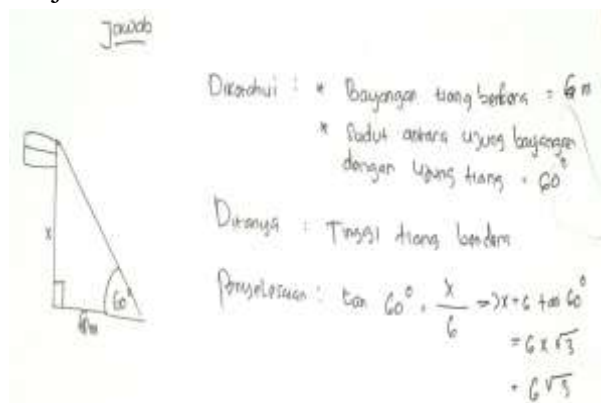 Jawab
Diketahui : * Bayangan tiang bendera = 6 m
* Sudut antara ujung bayangan
dengan ujung tiang = 60°
Ditanya : Tinggi tiang bendera
Penyelesaian : tan 60° = x/6 => x = 6 tan 60°
= 6 x √3
= 6√3
x
60°
6m